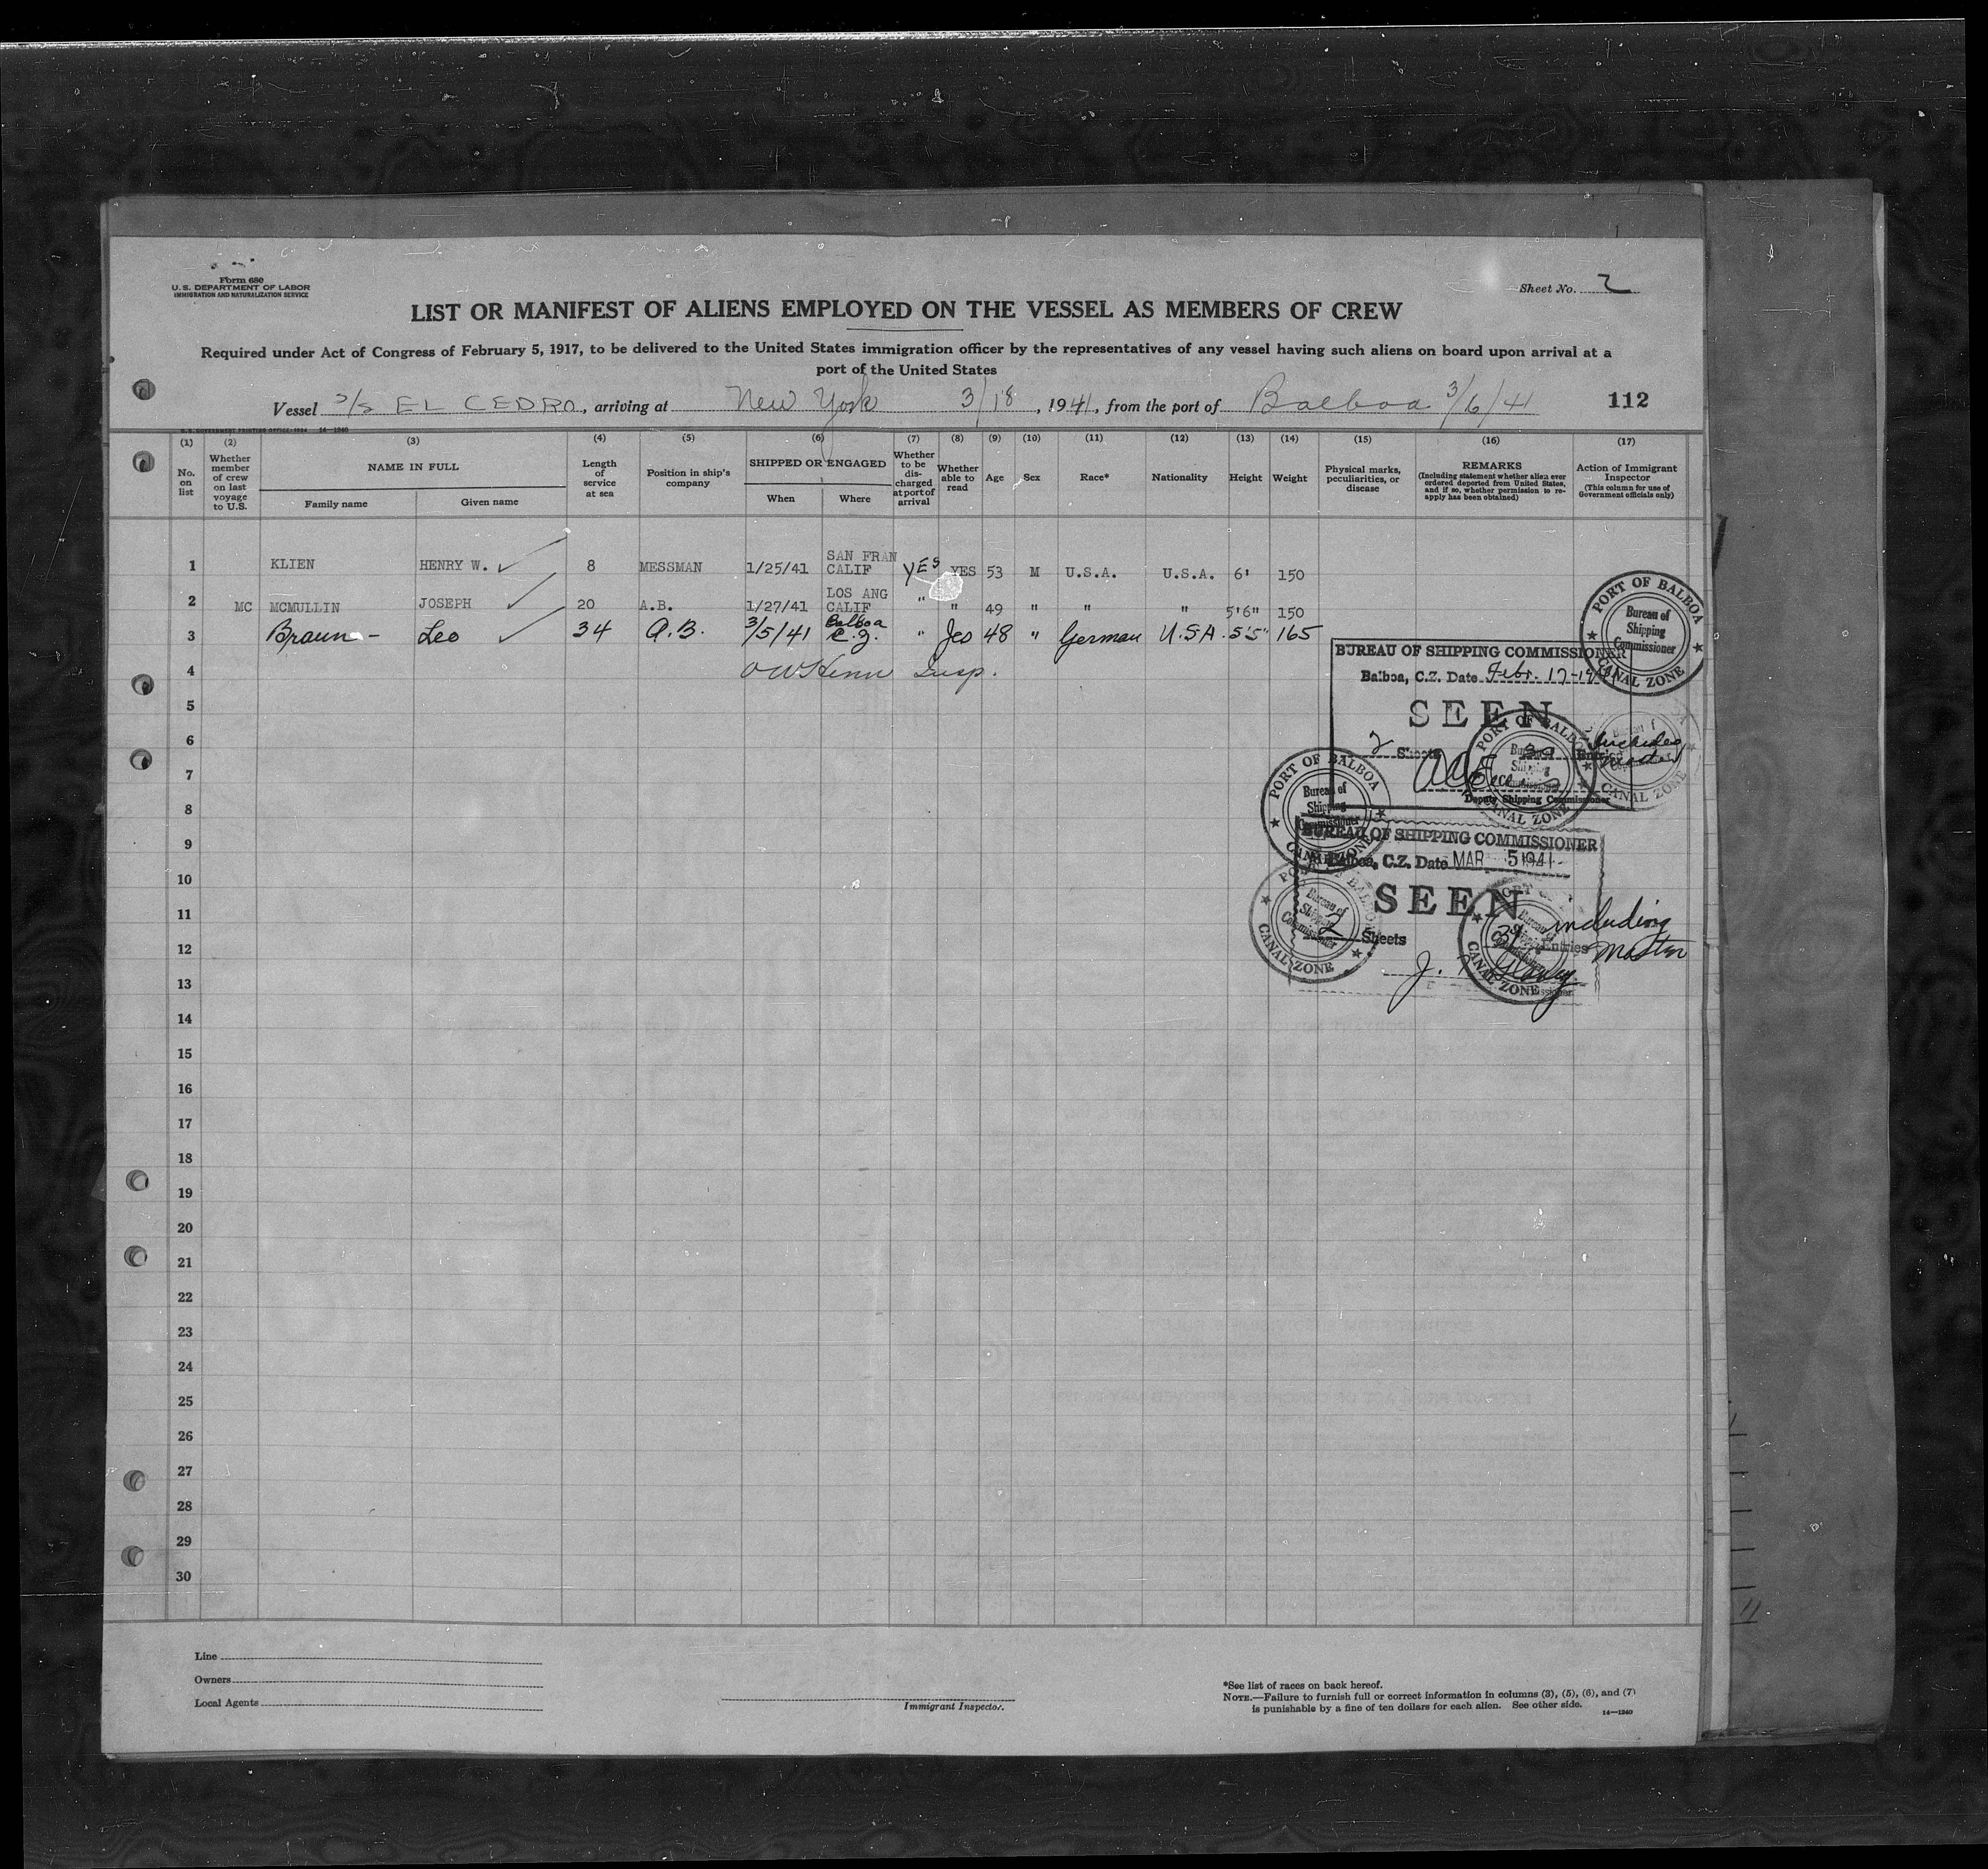 Form 680
U. S. DEPARTMENT OF LABOR
IMMIGRATION AND NATURALIZATION SERVICE
Sheet No. 2
LIST OR MANIFEST OF ALIENS EMPLOYED ON THE VESSEL AS MEMBERS OF CREW
Required under Act of Congress of February 5, 1917, to be delivered to the United States immigration officer by the representatives of any vessel having such aliens on board upon arrival at a
port of the United States
Vessel S/S EL CEDRO, arriving at New York 3/18, 1941, from the port of Balboa 3/6/41 112
U. S. GOVERNMENT PRINTING OFFICE 14—1240
(1) (2) (3) (4) (5) (6) (7) (8) (9) (10) (11) (12) (13) (14) (15) (16) (17)
No. on list
Whether member of crew on last voyage to U.S.
NAME IN FULL
Family name
Given name
Length of service at sea
Position in ship's company
SHIPPED OR ENGAGED
When
Where
Whether to be discharged at port of arrival
Whether able to read
Age
Sex
Race*
Nationality
Height
Weight
Physical marks, peculiarities, or disease
REMARKS
(Including statement whether alien ever ordered deported from United States, and if so, whether permission to reapply has been obtained)
Action of Immigrant Inspector
(This column for use of Government officials only)
1 KLIEN HENRY W. 8 MESSMAN 1/25/41 SAN FRAN CALIF YES YES 53 M U.S.A. U.S.A. 6' 150
2 MC MCMULLIN JOSEPH 20 A.B. 1/27/41 LOS ANG CALIF " " 49 " " " 5'6" 150
3 Braun - Leo 34 A.B. 3/5/41 Balboa C.Z. " Yes 48 " German U.S.A. 5'5" 165
4 Insp.
5
6
7
8
9
10
11
12
13
14
15
16
17
18
19
20
21
22
23
24
25
26
27
28
29
30
PORT OF BALBOA
Bureau of
Shipping
Commissioner
CANAL ZONE
BUREAU OF SHIPPING COMMISSIONER
Balboa, C.Z. Date Febr. 17-1941
SEEN
2 Sheets
includes
master
Deputy Shipping Commissioner
PORT OF BALBOA
Bureau of
Shipping
Commissioner
CANAL ZONE
PORT OF BALBOA
Bureau of
Shipping
Commissioner
CANAL ZONE
BUREAU OF SHIPPING COMMISSIONER
Balboa, C.Z. Date MAR 5 1941
SEEN
2 Sheets 39 Entries including
Master
PORT OF BALBOA
Bureau of
Shipping
Commissioner
CANAL ZONE
CANAL ZONE
Line
Owners
Local Agents
Immigrant Inspector.
*See list of races on back hereof.
NOTE.—Failure to furnish full or correct information in columns (3), (5), (6), and (7)
is punishable by a fine of ten dollars for each alien. See other side.
14—1240